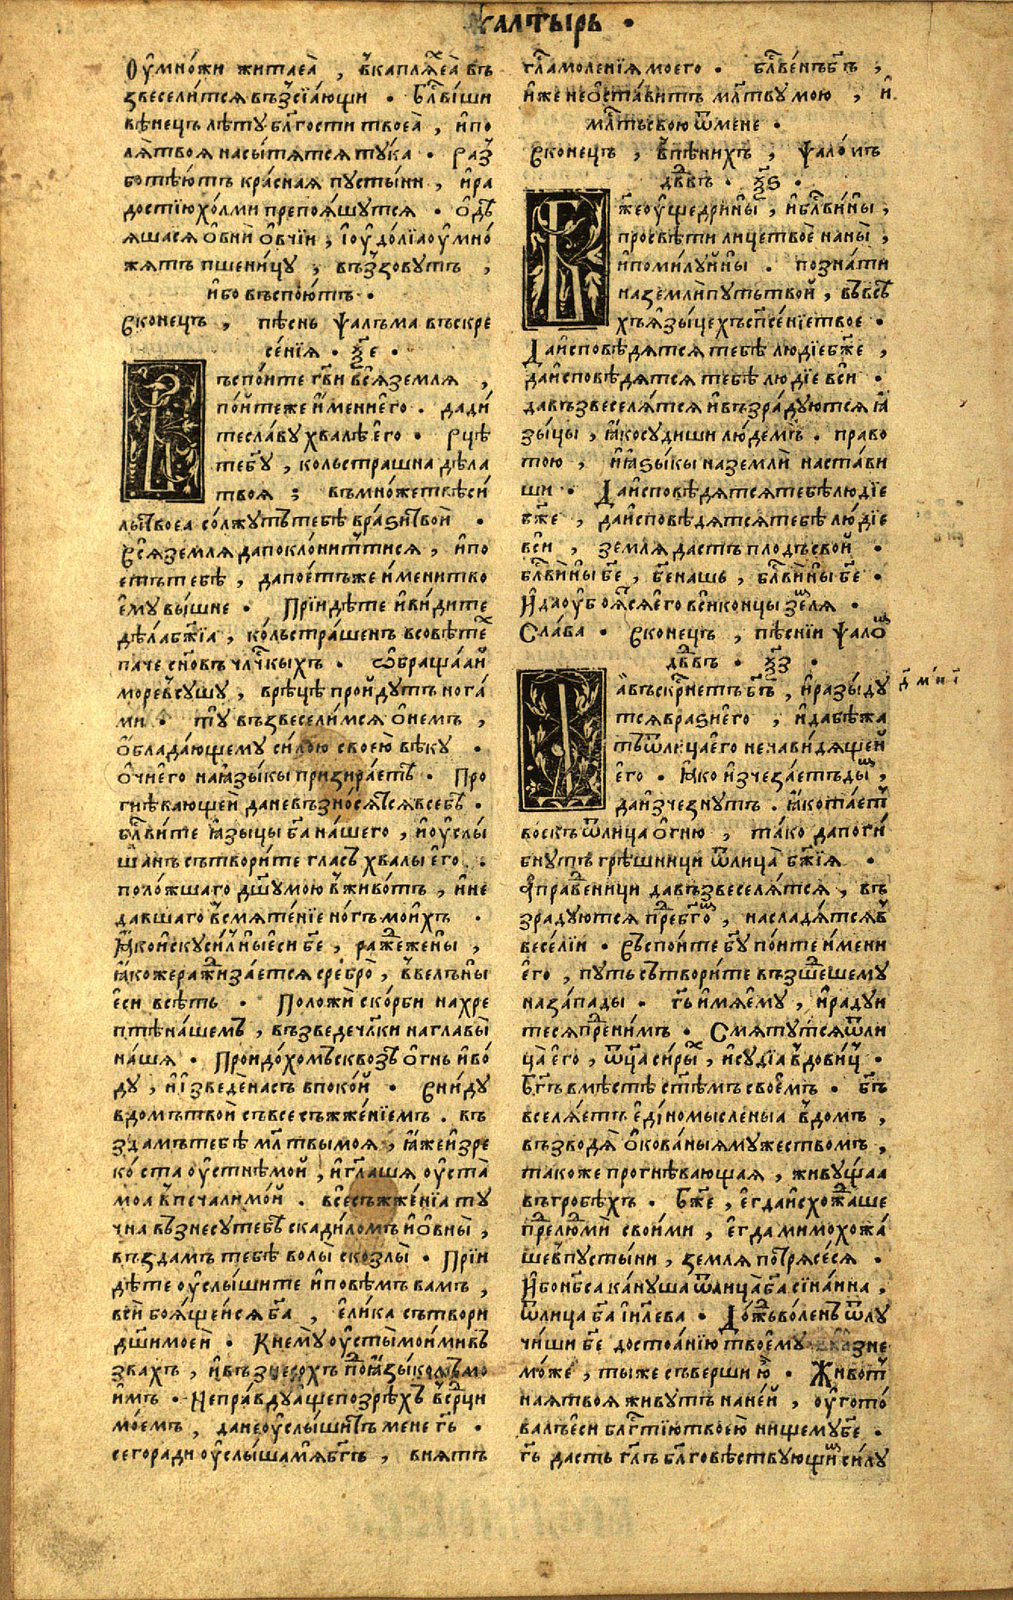 ѱалтырь ·
Оу҆мно́жи житаеа̀ , в҆каплѧⷯеа̀ въ
звеселитсѧ въз̾сїа́ющи · Бл҃ви́ши
вѣнецъ лѣту бл҃гости твоеа̀ , и҆по
лѧ̀твоѧ насы́тѧтсѧ тука · Раз̾
ботѣю́тъ кра́снаѧ пусты́ни , и҆ра
достїю хо́лми препоѧ́шутсѧ · О҆дѣ
ѧшасѧ о҆вни о҆вчїи , і҆оу҆до́лїа оу҆мно́
жѧтъ пшени́цу , въз̾зову́тъ ,
и҆бо въспою́тъ ·
Сконе́цъ , пѣснь ѱалъма въскре
се́нїѧ · ѯ҃е ·
ъспо́ите гв҃и всѧ̀ землѧ ,
по́итеже и҆́мени е҆го · дади́
те сла́ву хвалѣ̀ е҆го · Рцѣ́те
бг҃у , коль стра́шна дѣла
твоѧ̀ ; въмно́жествѣ си́
лы твоеа со́лжутъ тебѣ̀ вразѝ твои̑ ·
Всѧ̀ землѧ да покло́нитъ тисѧ , и҆по
етъ тебѣ̀ , да пое́тъ же и҆мени тво
е҆му вы́шне · Прїидѣ́те и҆ви́дите
дѣла̀ бж҃їа , ко́ль стра́шенъ всовѣ́теⷯ
паче сн҃овъ чл҃чкыхъ · Ѡ҆браща́ай
море в҆су́шу , врѣцѣ̀ про́йдутъ нога́
ми · ту възвесели́мсѧ о҆не́мъ ,
о҆блада́ющему си́лою своею вѣ́ку ·
о҆чи е҆го наꙗ҆зы́кы призира́етѣ · Про
гнѣвающеи дане възно́сѧтсѧ всебѣ ·
бл҃ви́те ꙗ҆зы́цы бг҃а на́шего , и҆оу҆слы́
шанъ сътвори́те гласъ хвалы̀ е҆го .
поло́жшаго дш҃у мою̀ в҆живо́тъ , и҆не
да́вшаго в҆смѧте́нїе но́гъ мои́хъ ·
ꙗ҆ко и҆скуси́лны е҆си бе҃ , ражⷣеже́ны ,
ꙗ҆коже ражⷣиза́етсѧ сребро̀ , в҆велъ ны̀
е҆си всѣ́ть · Положѝ ско́рби нахре
птѣ на́шемъ , възведе чл҃кы наглавы̀
на́шѧ · Проидо́хомъ сквозѣ̀ о҆гнь и҆во́
ду , и҆изведе́ насъ впоко́й · Вни́ду
вдо́мъ тво́й съвсесъжже́нїемъ . въ
зда́мъ тебѣ̀ мл҃твы моѧ̀ , ꙗ҆же и҆зре
ко́ста оу҆стнѣ̀ мои̑ , и҆гл҃ашѧ оу҆ста̀
моа̀ в҆печа́ли мо́й . всесъжже́нїа ту
чна възнесу̀ тебѣ̀ скади́ломъ и҆о҆вны̀ ,
въздамъ тебѣ̀ волы̀ скозлы̀ · Прїи
дѣ́те оу҆слы́шите и҆повѣмъ ва́мъ ,
всѝ боѧ́щеисѧ бг҃а , е҆ли́ка сътвори̑
дш҃и мое́и · К не́му оу҆сты̀ мои́ми въ
зва́хъ , и҆възнесо́хъ подъ ꙗ҆зы́комъ мо
и́мъ · Непра́вду а҆ще позрѣ́хъ в҆срⷣци
мо́емъ , дане оу҆слы́шитъ мене гь҃ ·
сего́ ради оу҆слы́ша мѧ̀ бг҃ъ , внѧ́тъ
гл҃а моле́нїѧ моего · бл҃ве́нъ бг҃ъ ,
и҆же не о҆ста́витъ мл҃тву мою , и҆
млⷭ҇ть свою ѿмене ·
Сконе́цъ , в҆пѣнихъ , ѱало́мъ
дв҃двъ · ѯ҃ѕ ·
ж҃е оу҆ще́дри ны̀ , и҆бл҃ви́ ны ,
просвѣти лице твоѐ на ны̀ ,
и҆поми́луи ны̀ . позна́ти
наземлѝ путь тво́й , в҆всѣ
хъ ꙗ҆зы́цехъ сп҃се́нїе твое ·
Да и҆сповѣ́дѧтсѧ тебѣ̀ лю́дїе бж҃е ,
да и҆сповѣ́дѧтсѧ тебѣ̀ лю́дїе всѝ ·
да възвеселѧ́тсѧ и҆възра́дуютсѧ ꙗ҆
зы́цы , ꙗ҆ко су́диши лю́демъ . право
тою , и҆ꙗ҆зы́кы наземлѝ наста́ви
ши · Да и҆сповѣ́дѧтсѧ тебѣ̀ лю́дїе
бж҃е , да и҆сповѣ́дѧтсѧ тебѣ̀ лю́дїе
всѝ , землѧ̀ дастъ пло́дъ сво́й ·
бл҃ви́ ны бе҃ , бе҃ нашъ , бл҃ви́ ны бе҃ ·
И҆да оу҆боѧ́тсѧ е҆го всѝ концы̀ зе́млѧ ·
Сла́ва · Сконе́цъ , пѣсни̑ ѱало́ⷨ
дв҃двъ · ѯ҃з ·
а҆въскрⷭ҇нетъ бг҃ъ , и҆разы́ду
тсѧ вразѝ е҆го , и҆да бѣжа
тъ ѿлица е҆го ненави́дѧщеи
е҆го · ꙗ҆ко и҆зчеза́етъ ды́ⷨ ,
да и҆зче́знутъ . ꙗ҆ко та́етъ
во́скъ ѿлица о҆гню , та́ко да поги́
бнутъ грѣ́шници ѿлица̀ бж҃їѧ ·
А҆правⷣеници да възвеселѧ́тсѧ , въ
зра́дуютсѧ предъ бго҃ⷨ , насладѧ́тсѧ в҆
весе́лїи · Въспо́ите бг҃у по́ите и҆мени
е҆го , пу́ть сътвори́те възшеⷣшему
наза́пады · гь҃ и҆́мѧ е҆му , и҆ра́дуи
тесѧ преⷣни́мъ · Смѧту́тсѧ ѿли
ца̀ е҆го , ѿц҃а си́рыⷯ , и҆судїа̀ вдови́цъ ·
Бг҃ъ вмѣ́стѣ ст҃ѣмъ своемъ · бг҃ъ
вселѧ́етъ е҆диномы́сленыа в҆до́мъ ,
възводѧ̀ о҆кова́ныѧ му́жествомъ ,
та́коже прогнѣвающаѧ , живу́щаа
въгробѣ́хъ · Бж҃е , е҆гда и҆схожⷣа́ше
преⷣ лю́дми свои́ми , е҆гда мимохожа́
ше в҆пусты́ни , землѧ̀ потрѧсесѧ ·
И҆бо нб҃са ка́нуша ѿлица̀ бг҃а си́нанна ,
ѿлица бг҃а і҆и҃лева · До́жⷣь во́ленъ ѿлу
чи́ши бе҃ достоа́нїю твоему , и҆ꙁне
мо́же , ты́же съверши ю̀ · Живо́т
наѧ твоѧ живу́тъ на не́й , оу҆гото́
валъ е҆си бл҃гтїю твоею̀ ни́щему бе҃ ·
гь҃ да́стъ гл҃ъ бл҃говѣству́ющиⷨ си́лу